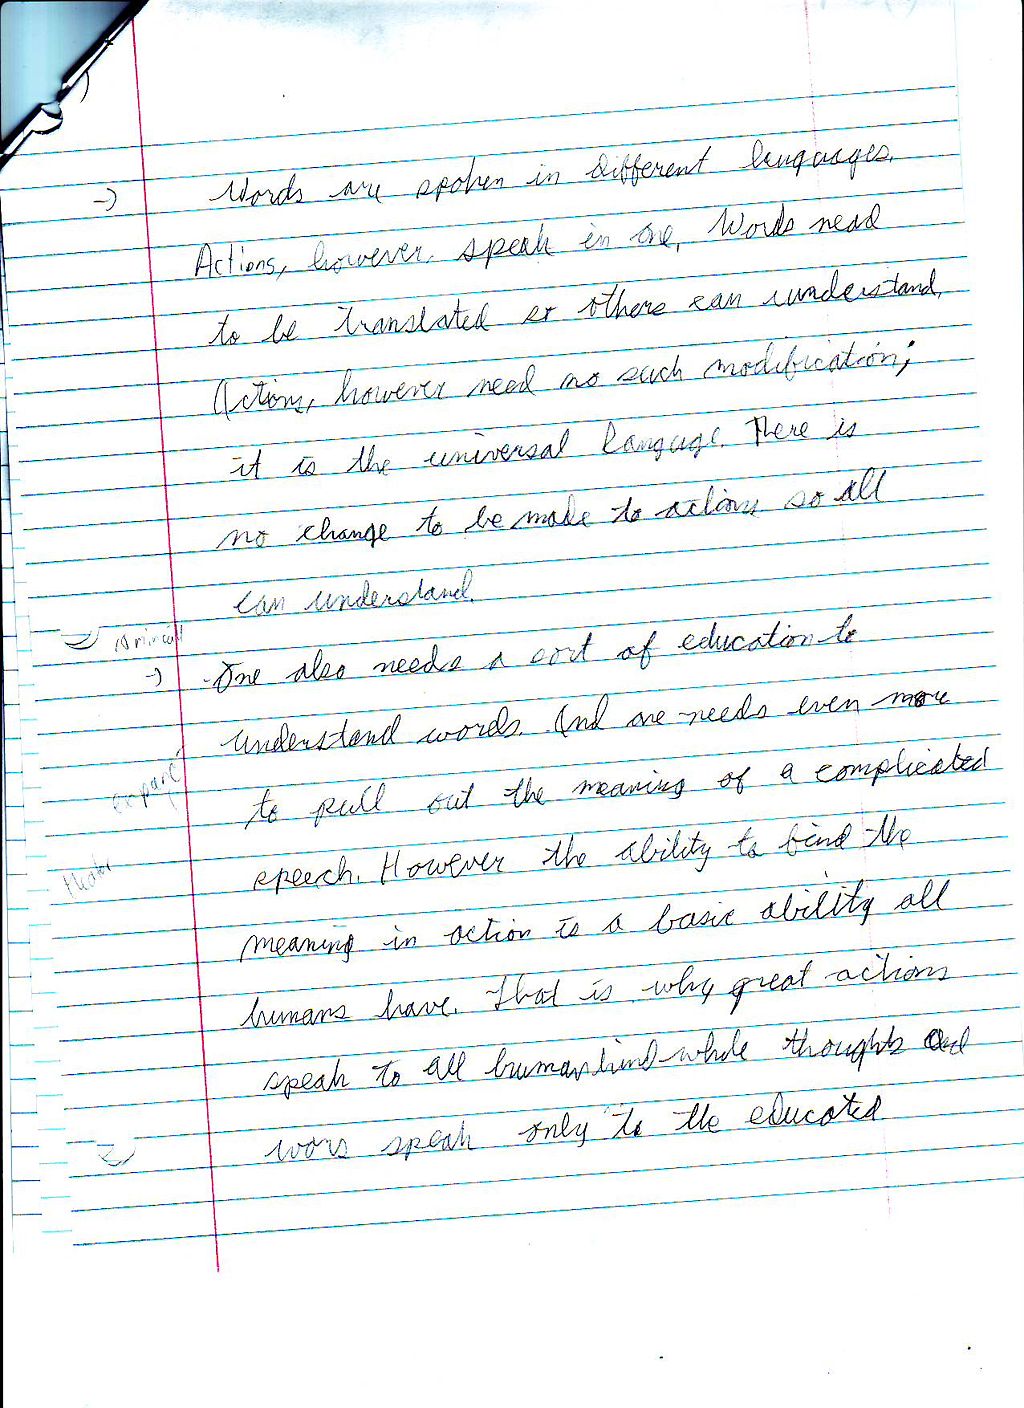 → Words are spoken in different languages.
Actions, however, speak in one. Words need
to be translated so others can understand.
Actions, however need no such modification;
it is the universal language. There is
no change to be made to actions so all
can understand.
→ One also needs a sort of education to
understand words. And one needs even more
expand
to pull out the meaning of a complicated
speech. However the ability to find the
meaning in action is a basic ability all
humans have. That is why great actions
speak to all humankind while thoughts and
wors speak only to the educated